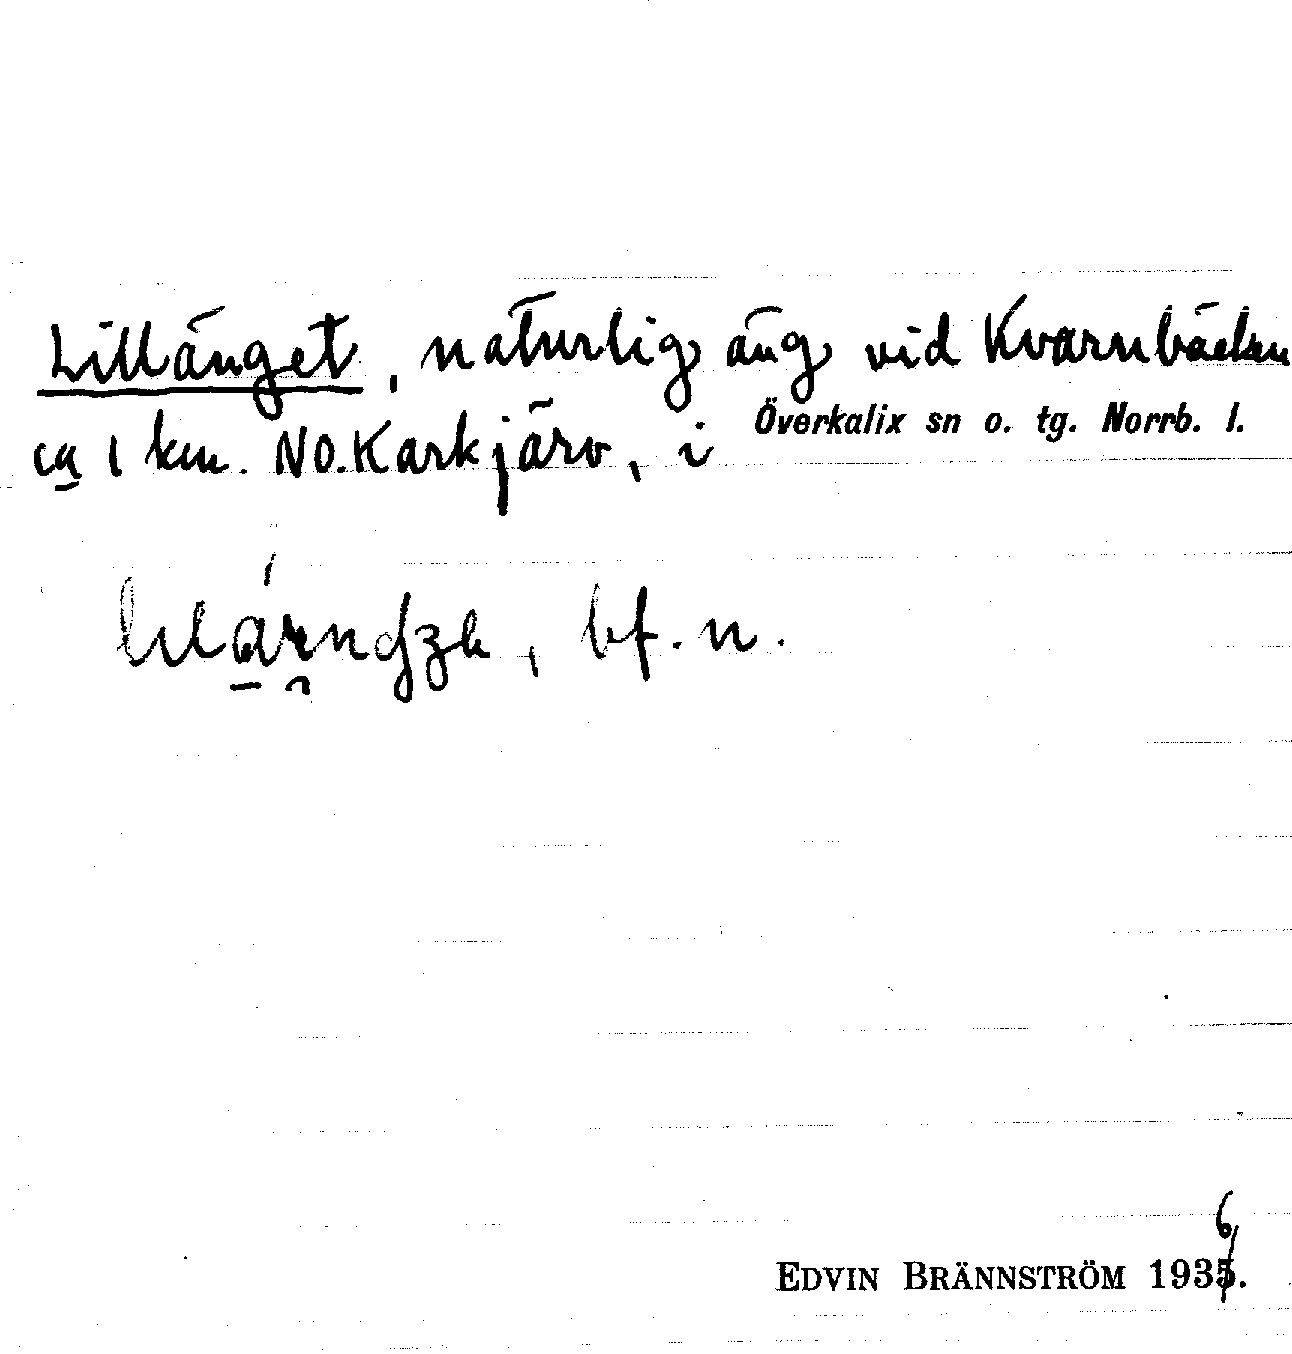 Lillänget, naturlig äng vid Kvarnbäcken
ca 1 km. NO. Karkjärv, i Överkalix sn o. tg. Norrb. l.
bf. n.
EDVIN BRÄNNSTRÖM 1936.